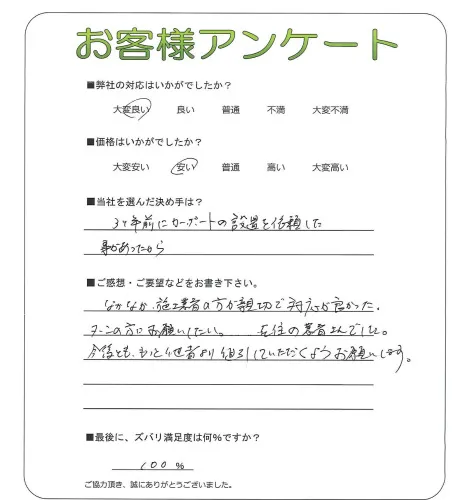 お客様アンケート
■弊社の対応はいかがでしたか？
大変良い 良い 普通 不満 大変不満
■価格はいかがでしたか？
大変安い 安い 普通 高い 大変高い
■当社を選んだ決め手は？
3ヶ年前にカーポートの設置を依頼した
事があったから
■ご感想・ご要望などをお書き下さい。
なかなか、施工業者の方が親切で対応が良かった。
の方にお願いしたい。 在住の業者さんでした。
今後とも、もっと他者より値引していただくようお願いします。
■最後に、ズバリ満足度は何%ですか？
100 %
ご協力頂き、誠にありがとうございました。